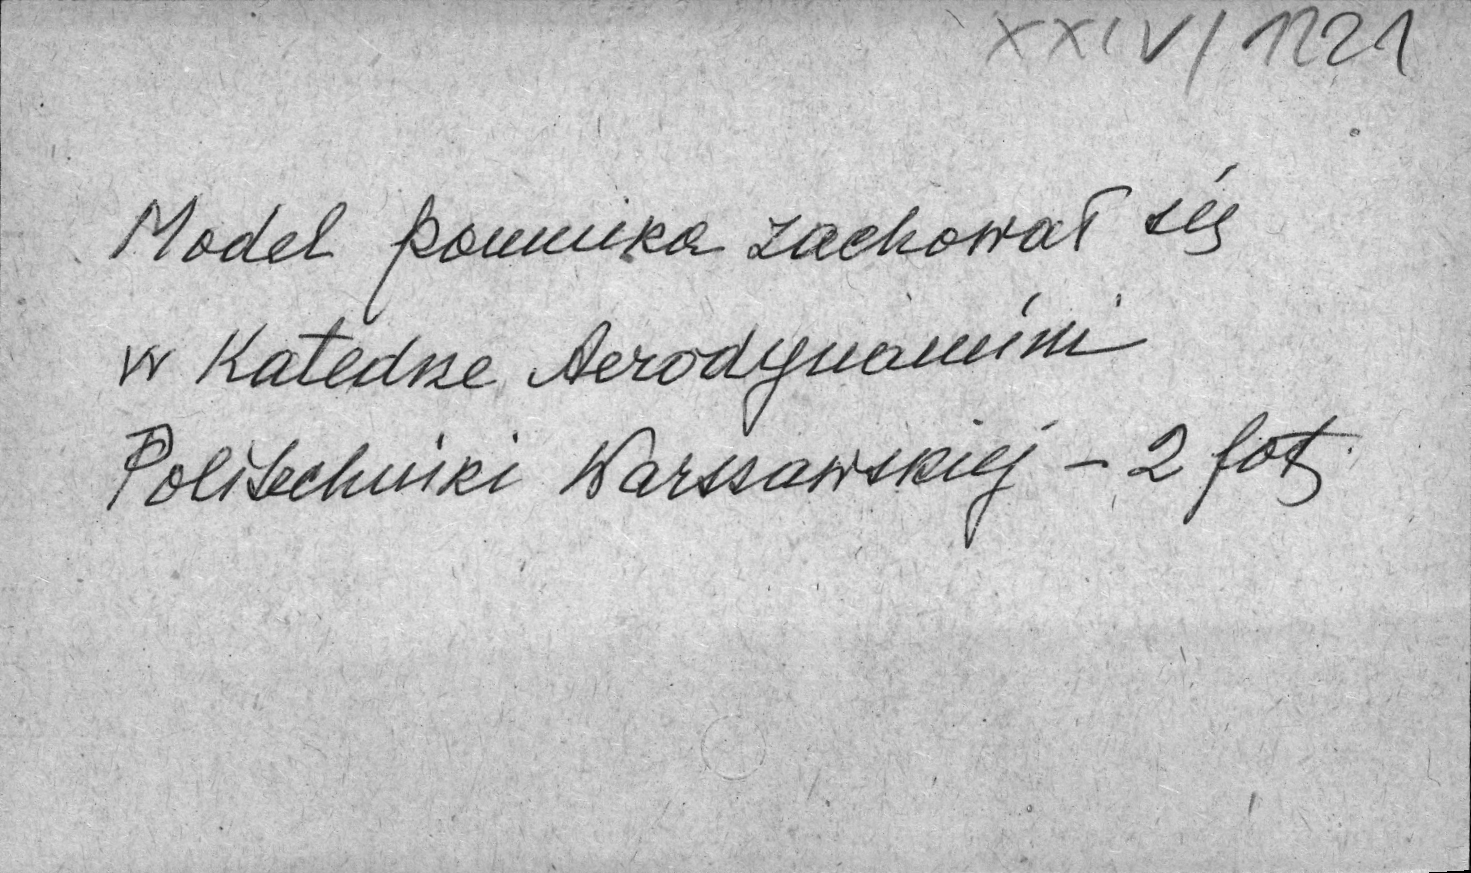 XXIV/1221
Model pomnika zachował się
w Katedrze Aerodynamiki
Politechniki Warszawskiej – 2 fot.